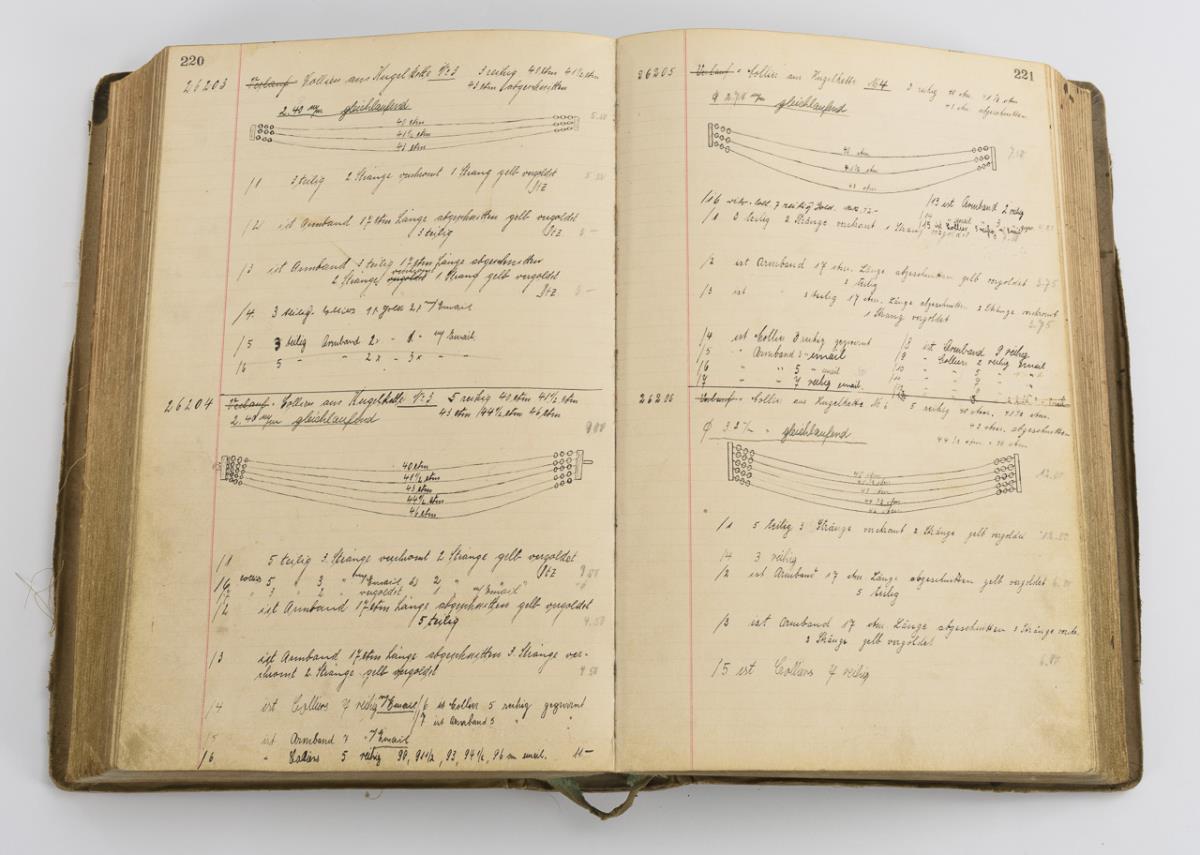 220
26203 Verlauf Colliers aus Kugelkette No 3 3 reihig 40 ctm 41½ ctm
43 ctm abgeschnitten
2.40 m/m gleichlaufend
5.50
40 ctm
41½ ctm
43 ctm
/1 3 teilig 2 Stränge verchromt 1 Strang gelb vergoldet
/2 ist Armband 17 ctm Länge abgeschnitten gelb vergoldet
3 teilig
/3 ist Armband 3 teilig 17 ctm Länge abgeschnitten
verchromt
2 Stränge vergoldet 1 Strang gelb vergoldet
/4 3 teilig Colliers Email
/5 3 teilig Armband 2 x Email
/6 5 " " 2 x - 3 x
26204 Verlauf Colliers aus Kugelkette No 3 5 reihig 40 ctm 41½ ctm
43 ctm 44½ ctm 46 ctm
2.40 m/m gleichlaufend
9.00
40 ctm
41½ ctm
43 ctm
44½ ctm
46 ctm
/1 5 teilig 3 Stränge verchromt 2 Stränge gelb vergoldet
/6 Collier 5 " 3 " Email 2
vergoldet
/2 ist Armband 17 ctm Länge abgeschnitten gelb vergoldet
5 teilig
4.50
/3 ist Armband 17 ctm Länge abgeschnitten 3 Stränge ver-
chromt 2 Stränge gelb vergoldet
4.50
/4 ist Colliers 7 reihig Email /6 ist Collier 5 reihig
/7 ist Armband 5 " "
/5 ist Armband 7 Email
/6 " Colliers 5 reihig 90, 91½, 93, 94½, 96 m email. 11-
221
26205 Verlauf Collier aus Kugelkette No 4 3 reihig 40 ctm 41½ ctm
43 ctm abgeschnitten
Ø 2.70 m/m gleichlaufend
40 ctm
41½ ctm
43 ctm
/13 ist Armband 2 reihig
/1 3 teilig 2 Stränge verchromt 1 Strang vergoldet
/2 ist Armband 17 ctm. Länge abgeschnitten gelb vergoldet 3.75
3 teilig
/3 ist " 3 teilig 17 ctm. Länge abgeschnitten 2 Stränge verchromt
1 Strang vergoldet 3.75
/4 ist Collier 3 reihig
/5 " Armband 3 " email
/6 " " 5 " email
/7 " " 7 reihig email.
/8 ist Armband 9 reihig
/9 " Colliers 2 reihig email
26206 Verlauf Collier aus Kugelkette No 6 5 reihig 40 ctm. 41½ ctm.
43 ctm. abgeschnitten
44½ ctm. 46 ctm
Ø 3.2 m/m gleichlaufend
12.00
40 ctm
41½ ctm
43 ctm
44½ ctm
46 ctm
/1 5 teilig 3 Stränge verchromt 2 Stränge gelb vergoldet
/4 3 reihig
/2 ist Armband 17 ctm. Länge abgeschnitten gelb vergoldet
5 teilig
/3 ist Armband 17 ctm. Länge abgeschnitten 3 Stränge
2 Stränge gelb vergoldet
/5 ist Colliers 7 reihig